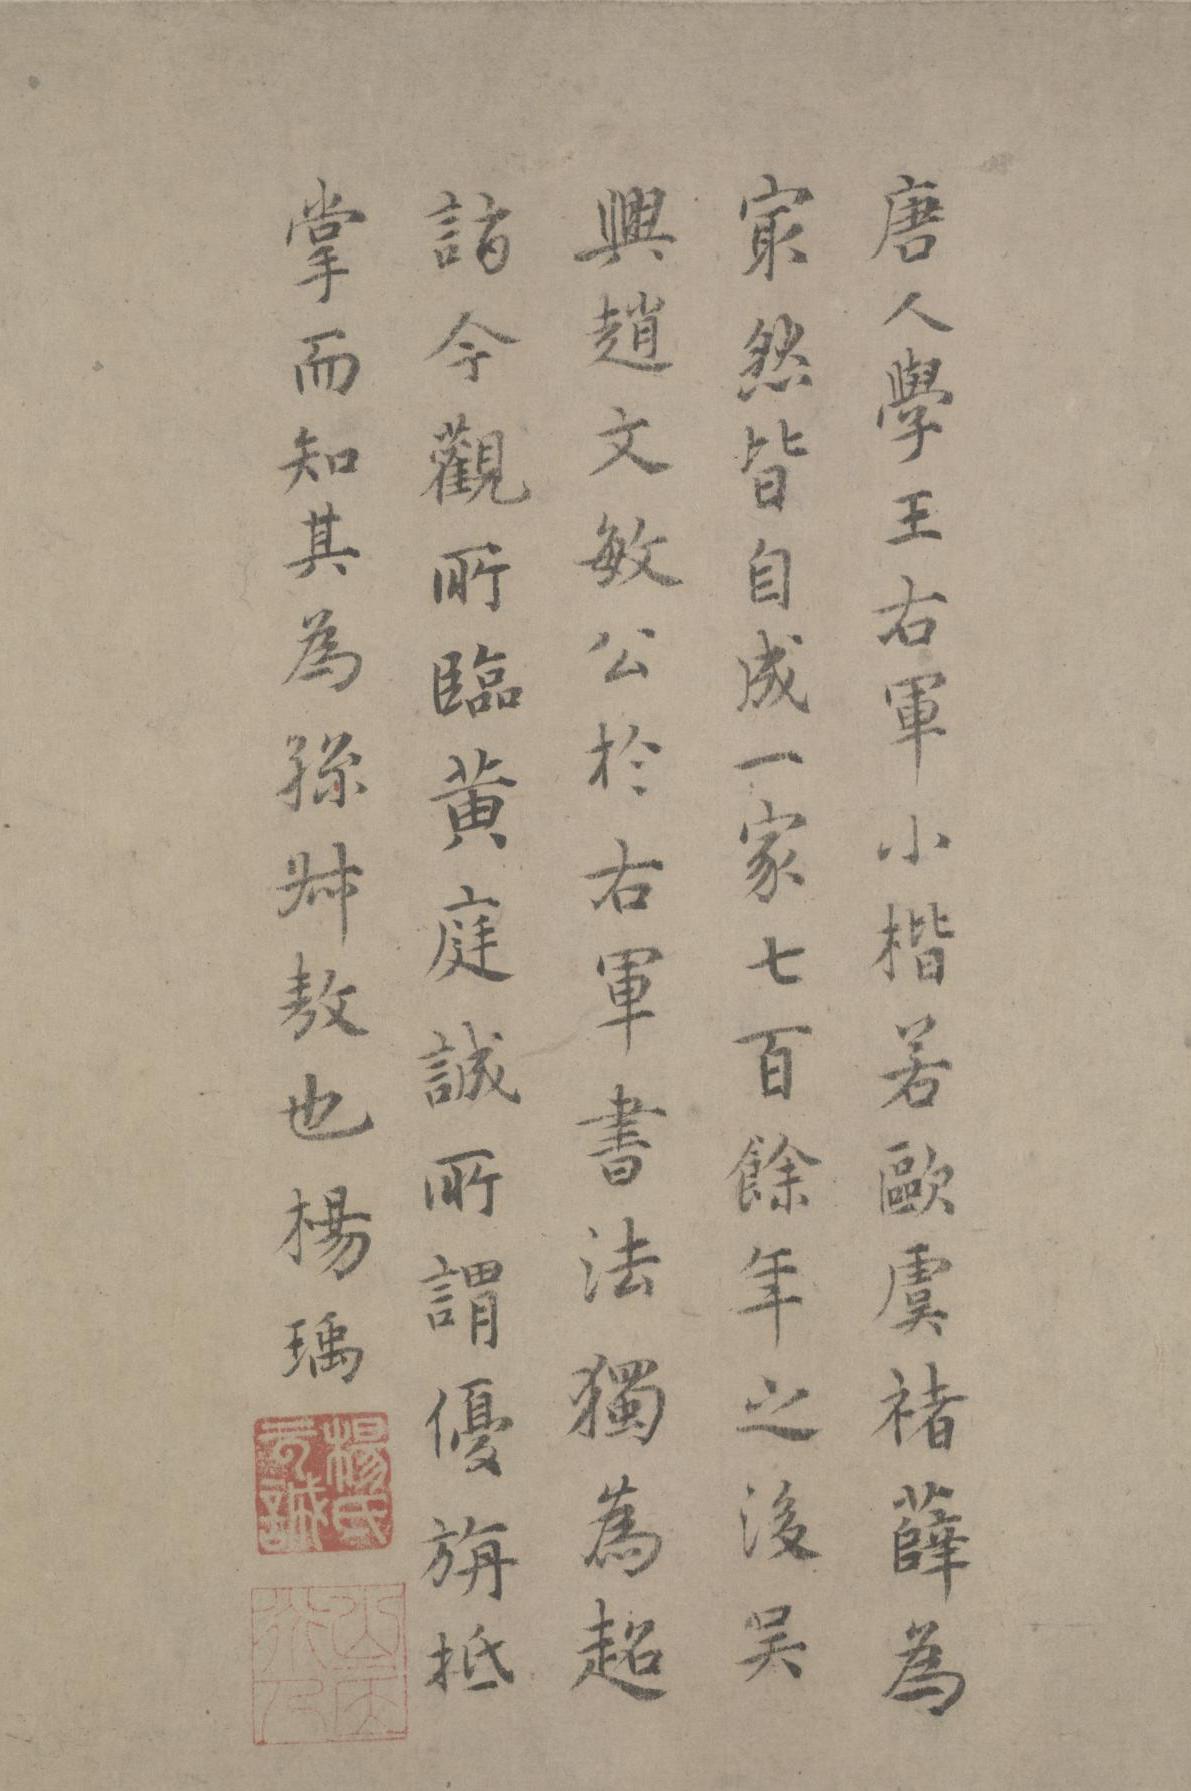 唐人學王右軍小楷若歐虞褚薛為
冣然皆自成一家七百餘年之後吴
興趙文敏公於右軍書法獨為超
詣今觀所臨黄庭誠所謂優旃抵
掌而知其為孫叔敖也楊瑀
楊氏元誠